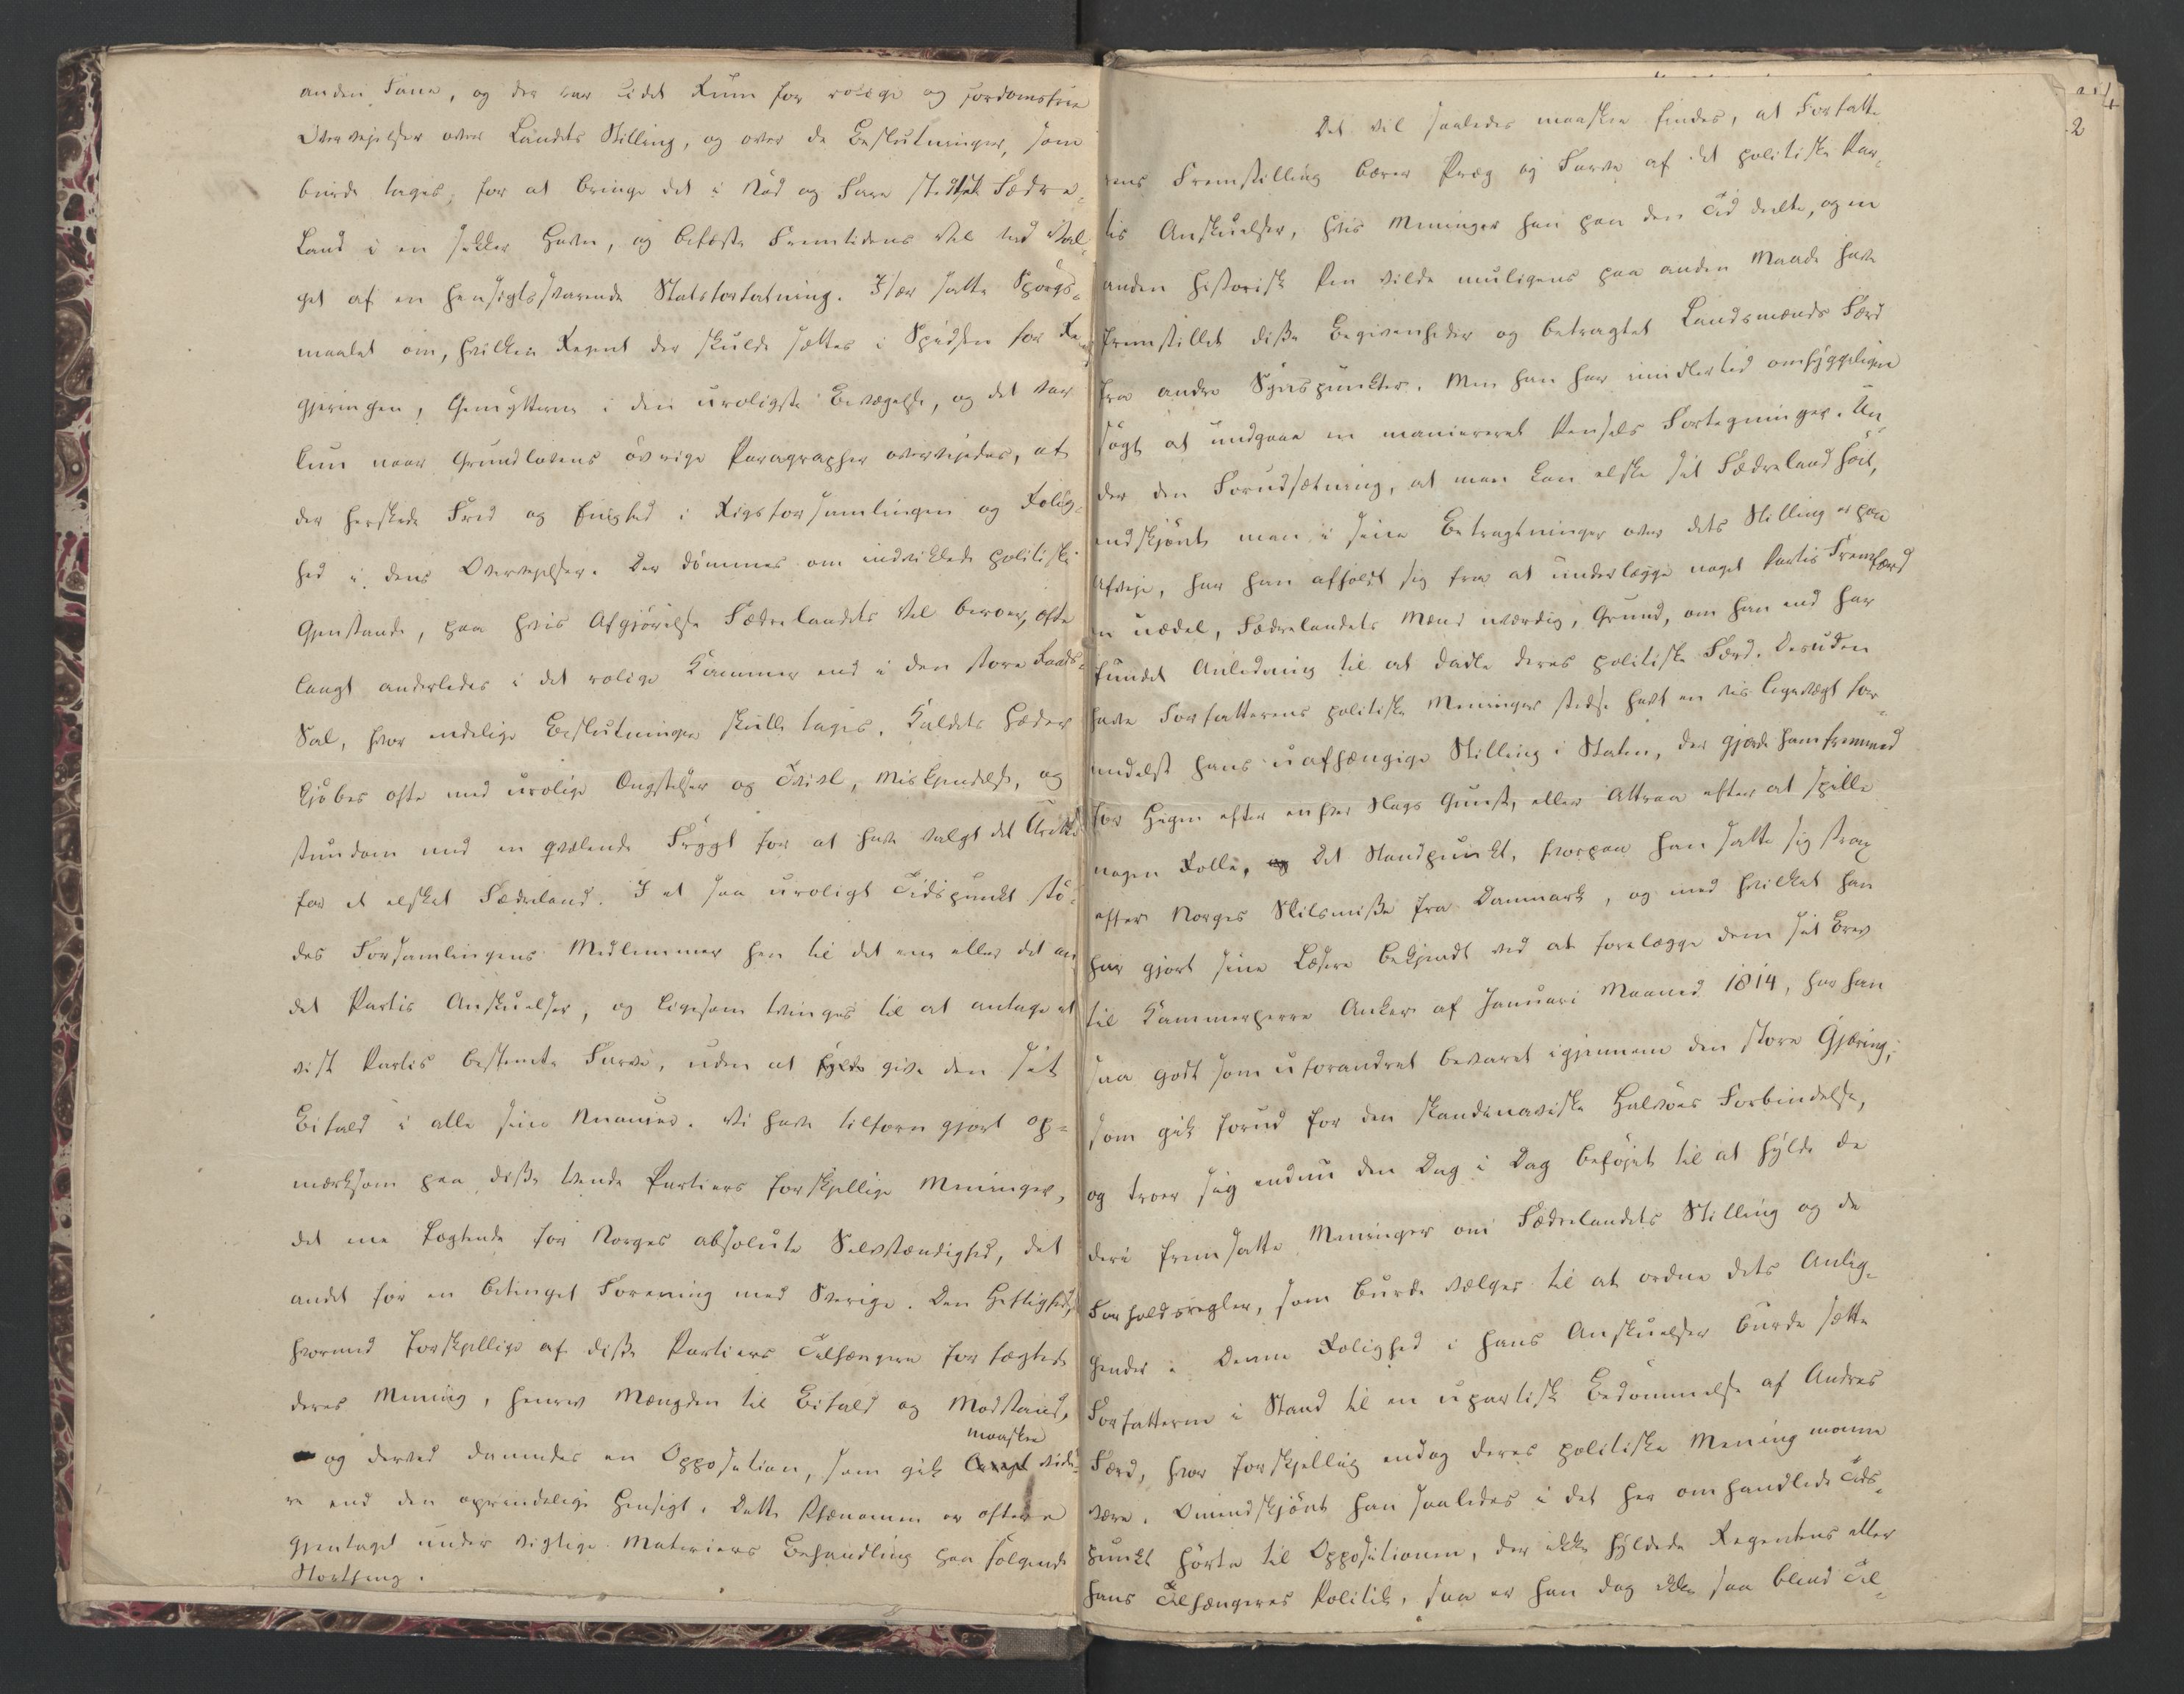 anden Fane, og der var lidet Rum for rolige og fordomsfrie
Overvejelser over Landets Stilling, og over de Beslutninger, som
burde tages, for at bringe det i Nød og Fare stedte Fædre-
land i en sikker Havn, og befæste Fremtidens Vel ved Val-
get af en hensigtssvarende Statsforfatning. Især satte Spørgs-
maalet om, hvilken Regent der skulde sættes i Spidsen for Re-
gjeringen, Gemytterne i den uroligste Bevægelse, og det var
kun naar Grundlovens övrige Paragrapher overvejedes, at
der herskede Fred og Enighed i Rigsforsamlingen og Rolig-
hed i dens Overvejelser. Der dömmes om indviklede politiske
Gjenstande, paa hvis Afgjörelse Fædrelandets Vel beroer, ofte
langt anderledes i det rolige Kammer end i den store Raads-
Sal, hvor endelige Beslutninger skulle tages. Kaldets Hæder
kjöbes ofte med urolige Ængstelser og Tvivl, Miskjendelse, og
stundom med en qvælende Frygt for at have valgt det Urette
for et elsket Fædreland. I et saa uroligt Tidspunkt stö-
des Forsamlingens Medlemmer hen til det ene eller det an-
det Partis Anskuelser, og ligesom tvinges til at antage et
vist Partis bestemte Farve, uden at give den sit
Bifald i alle sine Nuancer. Vi have tilforn gjort op-
mærksom paa disse tvende Partiers forskjellige Meninger,
det ene kæmpende for Norges absolute Selvstændighed, det
andet for en betinget Forening med Sverige. Den Heftighed,
hvormed forskjellige af disse Partiers Tilhængere forfægtede
deres Mening, henrev Mængden til Bifald og Modstand,
maaskee
og derved dannedes en Opposition, som gik langt vide-
re end den oprindelige Hensigt. Dette Phænomen er oftere
gjentaget under vigtige Materiers Behandling paa følgende
Storthing.
2
Det vil saaledes maaskee findes, at Forfatte-
rens Fremstilling bærer Præg og Farve af det politiske Par-
tis Anskuelser, hvis Meninger han paa den Tid deelte, og en
anden historisk Pen vilde muligens paa anden Maade have
fremstillet disse Begivenheder og betragtet Landsmænds Færd
fra andre Synspunkter. Men han har imidlertid omhyggeligen
søgt at undgaae en maniereret Pensels Fortegninger. Un-
der den Forudsætning, at man kan elske sit Fædreland höit,
endskjönt man i sine Betragtninger over dets Stilling er paa
Afveje, har han afholdt sig fra at underlægge noget Partis Fremfærd
en uædel, Fædrelandets Mænd uværdig, Grund, om han end har
fundet Anledning til at dadle deres politiske Færd. Desuden
have Forfatterens politiske Meninger stedse havt en vis Ligevægt for-
medelst hans uafhængige Stilling i Staten, der gjorde ham fremmed
for Higen efter enhver Slags Gunst, eller Attraa efter at spille
nogen Rolle, og Det Standpunkt, hvorpaa han satte sig strax
efter Norges Skilsmisse fra Danmark, og med hvilket han
har gjort sine Læsere bekjendt ved at forelægge dem sit Brev
til Kammerherre Anker af Januari Maaned 1814, har han
saa godt som uforandret bevaret igjennem den store Gjæring,
som gik forud for den skandinaviske Halvöes Forbindelse,
og troer sig endnu den Dag i Dag beföjet til at hylde de
deri fremsatte Meninger om Fædrelandets Stilling og de
Forholdsregler, som burde vælges til at ordne dets Anlig-
gender. Denne Rolighed i hans Anskuelser burde sætte
Forfatteren i Stand til en upartisk Bedömmelse af Andres
Færd, hvor forskjellig endog deres politiske Mening monne
være. Omendskjönt han saaledes i det her omhandlede Tids-
punkt hörte til Oppositionen, der ikke hyldede Regentens eller
hans Tilhængeres Politik, saa er han dog ikke saa blind Til-